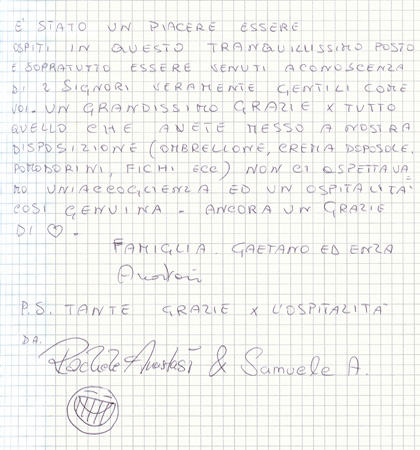 E' STATO UN PIACERE ESSERE
OSPITI IN QUESTO TRANQUILLISSIMO POSTO
E SOPRATUTTO ESSERE VENUTI A CONOSCENZA
DI 2 SIGNORI VERAMENTE GENTILI COME
VOI. UN GRANDISSIMO GRAZIE X TUTTO
QUELLO CHE AVETE MESSO A NOSTRA
DISPOSIZIONE (OMBRELLONE, CREMA DOPOSOLE,
POMODORINI, FICHI ECC) NON CI ASPETTAVA
MO UN'ACCOGLIENZA ED UN OSPITALITA'
COSI GENUINA - ANCORA UN GRAZIE
DI ♡ -
FAMIGLIA. GAETANO ED ENZA
P.S. TANTE GRAZIE X L'OSPITALITA'
DA.
Rachele Anastasi & Samuele A.